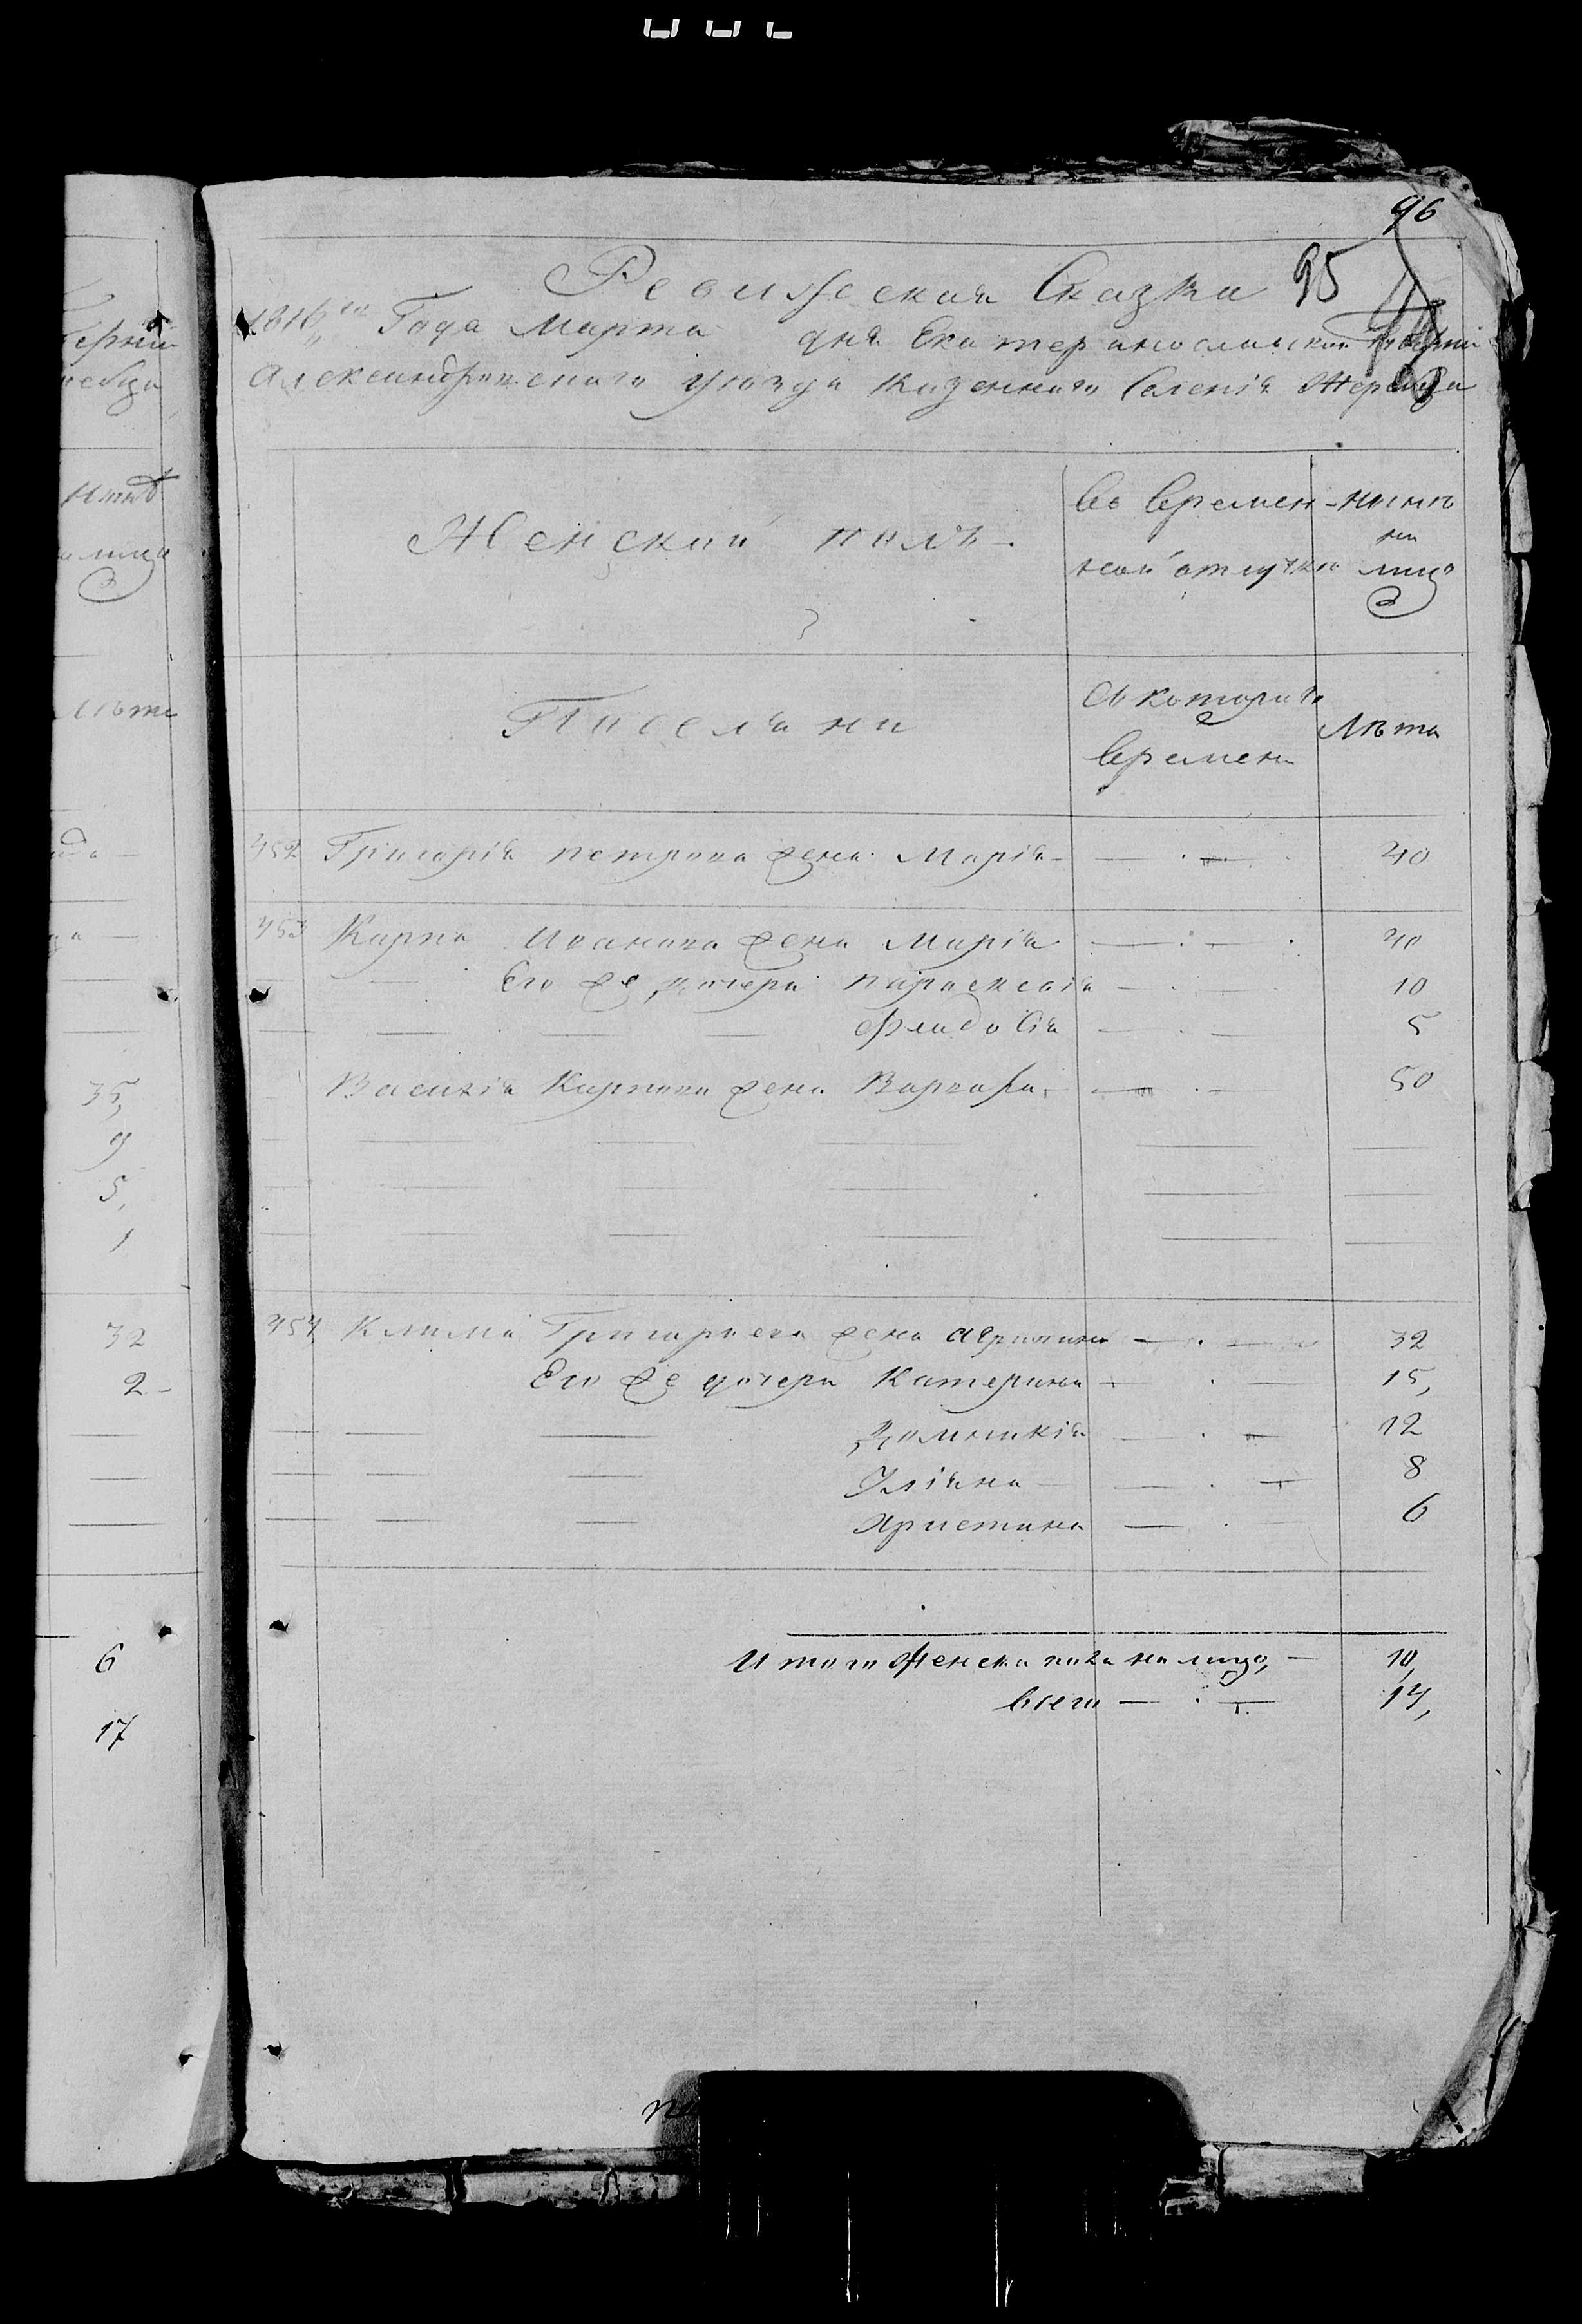 96
Ревижская Сказка 95
1816го Года Марта дня Екатеринославской Губерніи
Александровского уѣзда Казенного Селенія Жеребца
Женский полъ
Въ Времен-
ной отлучкѣ
Ныне
на
лицо
Поселяни
Съ которого
Времени
Лѣта
452 Григорія петрова жена Марія 40
453 Карпа Иванова жена Марія 40
Его же дочери параскевія 10
Феидосія 5
Василія Карпова жена Варвара 50
454 Клима Григориева жена 32
Его же дочери Катерина 15,
Домникія 12
Уліяна 8
Христина 6
Итого женска пола на лицо, 10,
всего 14,
35,
9
5,
1
32
2
6
17